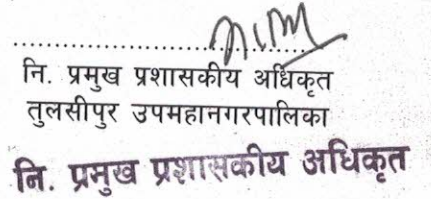 नि. प्रमुख प्रशासकीय अधिकृत
तुलसीपुर उपमहानगरपालिका
नि. प्रमुख प्रशासकीय अधिकृत